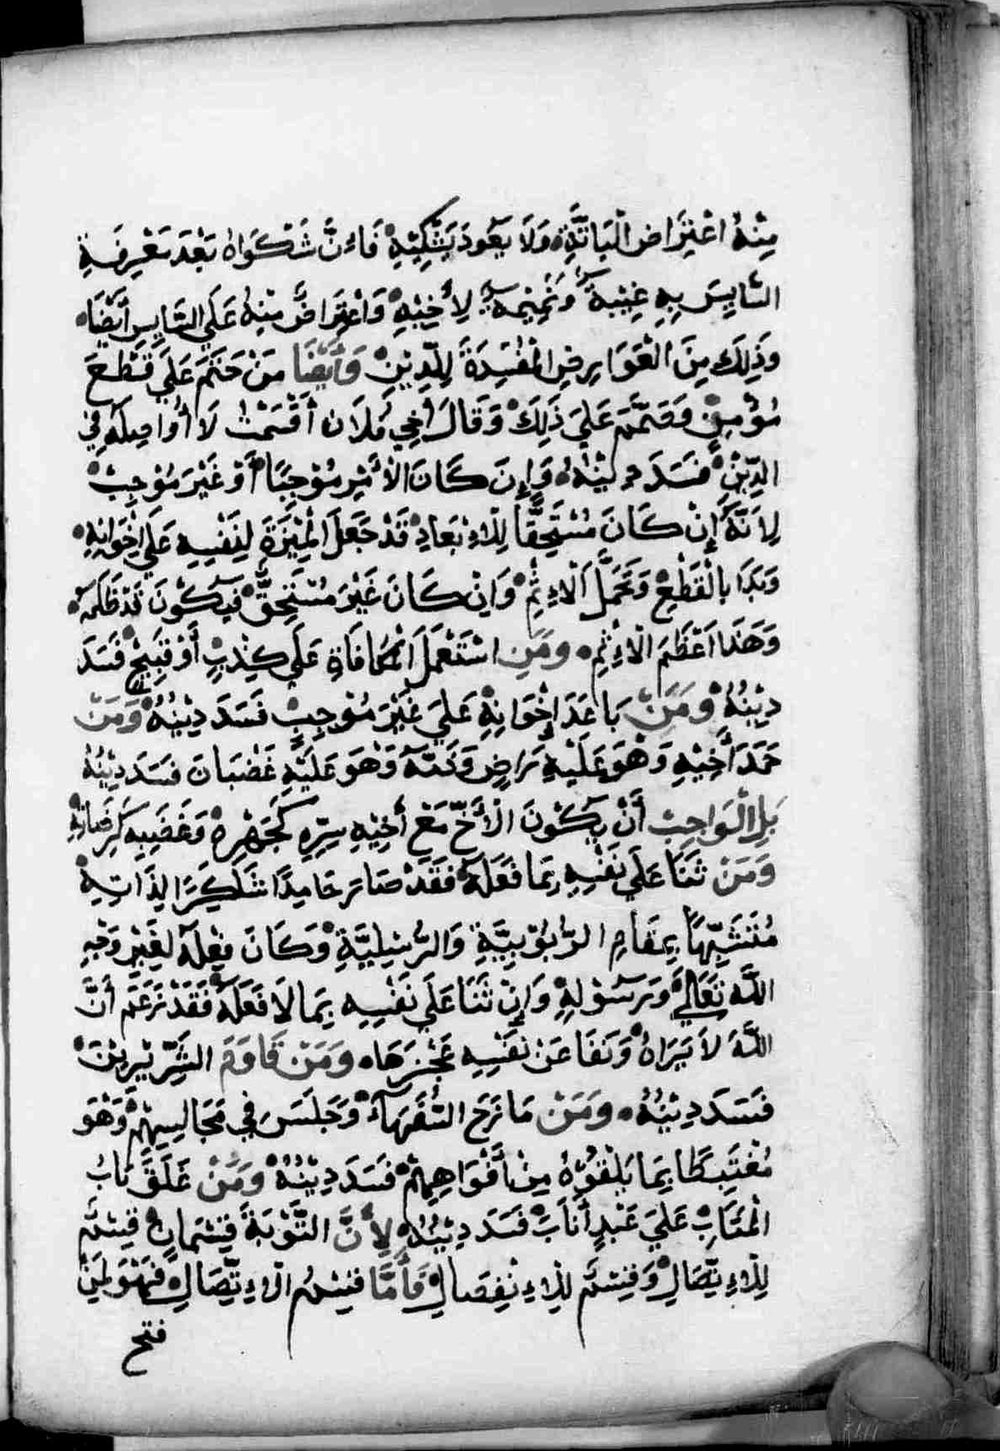 مِنْهُ اعْتِرَاض الْبَاتَّةِ وَلَا يَعُودَ يَشْكِيْهِ فَاِنَّ شَكْوَاهُ بَعْدَ مَعْرِفَةِ
السَّايِسِ بِهِ غِيْبَةً وَنَمِيْمَةً لِأَخِيْهِ وَاعْتِرَاضٌ مِنْهُ عَلَي السَّايِسِ أَيْضًا
وَذَلِكَ مِنَ الْعَوَارِضِ الْمُفْسِدَةَ لِلدِّيْنِ وَأَيْضًا مَنْ حَتَمَ عَلَي قَطْعَ
مُؤْمِنٍ وَصَمَّمَ عَلَي ذَلِكَ وَقَالَ أَخِي فُلَان أَقْسَمْتُ لَا أُوَاصِلَهُ فِي
الدِّيْنِ فَسَدَ دِيْنُهُ وَإِنَ كَانَ الْأَمْرِ مُوْجِبًا أَوْ غَيْرَ مُوْجِبْ
لِاَنَّهُ إِنْ كَانَ مُسْتَحِقًّا لِلْاِبْعَادِ قَدْ جَعَلَ الْمِيْزَةَ لِنَفْسِهِ عَلَي اِخْوَانِهِ
وَبَدَا بِالْقَطْعِ وَتَحَمَّلَ الْاِثْمِ وَاِنْ كَانَ غَيْرَ مُسْتَحِقٍّ فَيَكُوْنَ قَدْ ظَلَمَهُ
وَهَذَا اَعْظَمَ الْاِثْمِ وَمَنِ اسْتَعْمَلَ الْمُكَافَاةِ عَلَي كِذْبٍ أَوْ قَبِيْحٍ فَسَدَ
دِيْنُهُ وَمَنْ بَاعَدَ إِخْوَانِهِ عَلَيَ غَيْرَ مُوْجِبٍ فَسَدَ دِيْنُهُ وَمَنْ
حَمَدَ أَخِيْهِ وَهْوَ عَلَيْهِ رَاضٍ وَذَمَّهُ وَهْوَ عَلَيْهِ غَضْبَانَ فَسَدَ دِيْنُهُ
بَلِ الْوَاجِبْ أَنْ يَكُوْنَ الْأَخّ مَعْ أَخِيْهِ سِرّهِ كَجَهْرِهِ وَغَضَبِهِ كَرِضَائِهِ
وَمَنْ ثَنَا عَلَي نَفْسِهِ بِمَا فَعَلَهُ فَقَدْ صَارَ حَامِدًا شَاكِرًا لِذَاتِهِ
مُتَشَبِّهًا بِمَقَامِ الرُّبُوْبِيَّةِ وَالرُّسْلِيَّةِ وَكَانَ فِعْلَهُ لِغَيْرِ وَجْهِ
اللَّهَ تَعَالَي وَرَسُوْلِهِ وَإِنْ ثَنَا عَلَي نَفْسِهِ بِمَا لَا فَعَلَهُ فَقَدْ زَعَمَ أَنَّ
اللَّهَ لَا يَرَاهُ وَنَفَا عَنْ نَفْسِهِ عَجْزَهَا وَمَنْ قَاوَمَ الشِّرِّيْرِيْنَ
فَسَدَ دِيْنُهُ وَمَنْ مَازَحَ السُّفَهَآءَ وَجَلَسَ فِي مَجَالِسِهِمْ وَهْوَ
مُغْتَبِطًا بِمَا يَلْفُوْهُ مِنْ أَفْوَاهِهِمْ فَسَدَ دِيْنُهُ وَمَنْ غَلَقَ بَابُ
الْمَتَابْ عَلَيَ عَبْدٍ أَنَابَ فَسَدَ دِيْنُهُ لِأَنَّ التَّوْبَةَ قِسْمَانِ قِسْمٌ
لِلْاِتِّصَالِ وَقِسْمٌ لِلْاِنْفِصَالِ فَأَمَّا قِسْمُ الْاِتِّصَالِ فَهْوَ لِمَنْ
فتح